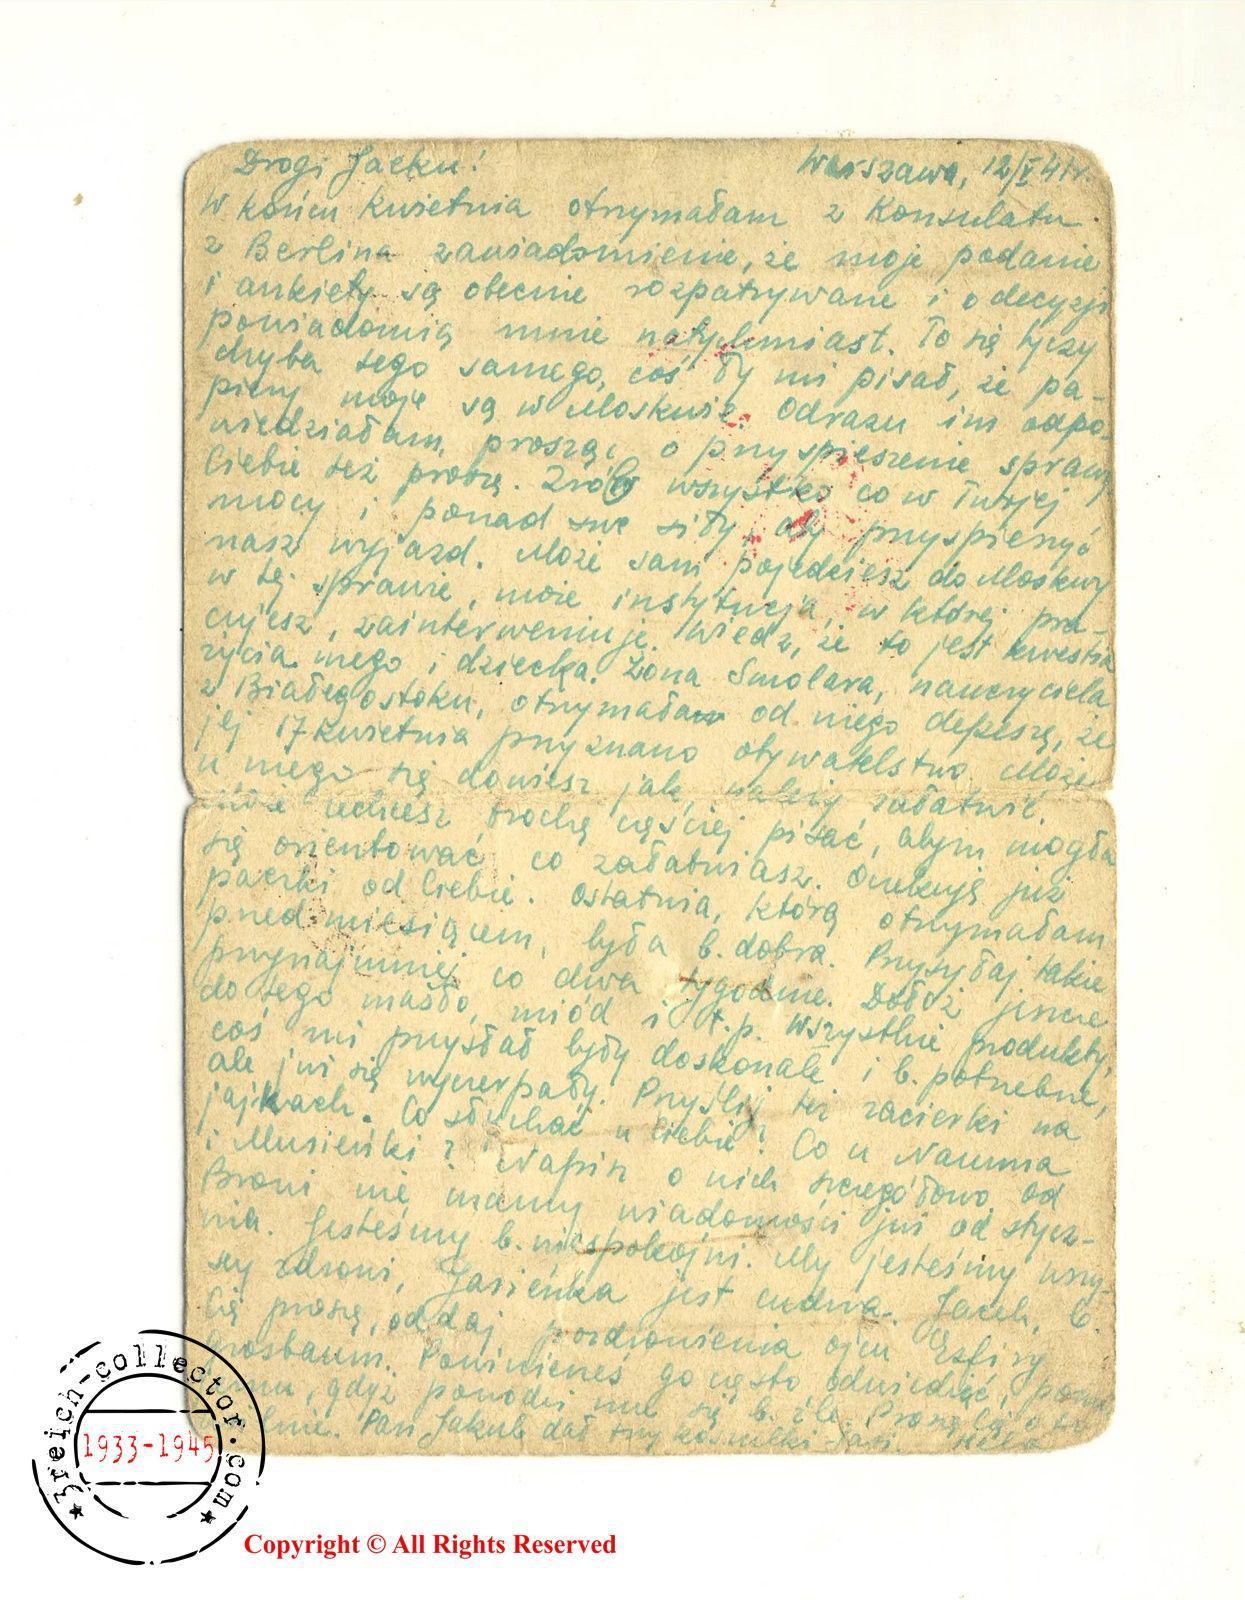 Drogi Jacku! Warszawa, 12/V 41 r.
W końcu kwietnia otrzymałam z Konsulatu
z Berlina zawiadomienie, że moje podanie
i ankiety są obecnie rozpatrywane i o decyzji
powiadomią mnie natychmiast. To się tyczy
chyba tego samego, coś Ty mi pisał, że pa-
piery moje są w Moskwie. Odrazu im odpo-
wiedziałam, proszą o przyspieszenie sprawy
Ciebie też proszę. Zrób wszystko co w Twojej
mocy i ponad swe siły, aby przyspieszyć
nasz wyjazd. Może sam pojedziesz do Moskwy
w tej sprawie, może instytucja, w której pra-
cujesz, zainterweniuje. Wiedz, że to jest kwestia
życia mego i dziecka. Żona Smolara, nauczyciela
z Białegostoku, otrzymała od niego depeszę, że
jej 17 kwietnia przyznano obywatelstwo. Może
u niego się dowiesz jak należy załatwić.
Może zechcesz trochę częściej pisać, abym mogła
się orientować co załatwiasz. Oczekuję już
paczki od Ciebie. Ostatnia, którą otrzymałam
przed miesiącem, była b. dobra. Przysyłaj takie
przynajmniej co dwa tygodnie. Dołóż jeszcze
do tego masło, miód i t.p. Wszystkie produkty,
coś mi przysłał były doskonałe i b. potrzebne,
ale już się wyczerpały. Przyślij też zacierki na
jajkach. Co słychać u Ciebie? Co u Nauma
i Musieńki? Napisz o nich szczegółowo. Od
Broni nie mamy wiadomości już od stycz-
nia. Jesteśmy b. niespokojni. My jesteśmy wszy-
scy zdrowi, Jasieńka jest cudna. Jacek, b.
Cię proszę, oddaj pozdrowienia ojcu Esfiry
Grosbaum. Powinieneś go często odwiedzać,
gdyż powodzi mu się b. źle. Proszę Cię o to
Pan Jakub dał trzy koszulki
3reich-collector.com
1933-1945
Copyright © All Rights Reserved